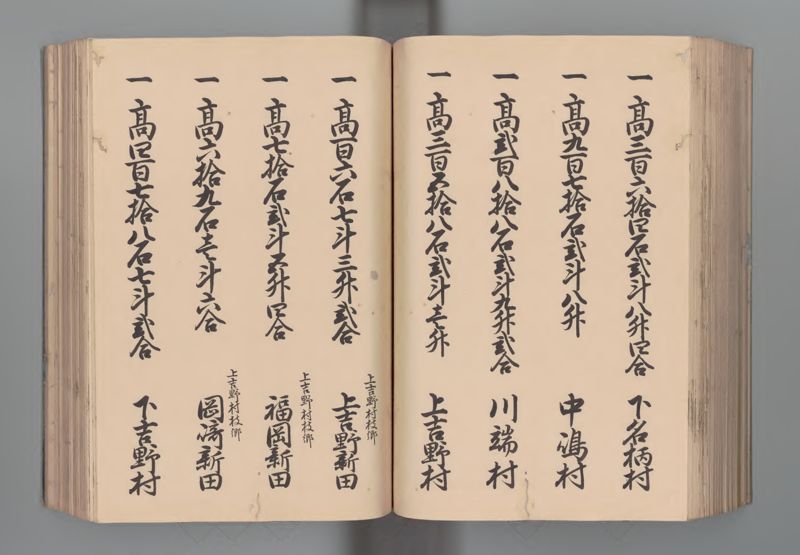 一 高三百六拾四石弐斗八升四合 下名柄村
一 高九百七拾石弐斗八升 中嶋村
一 高弐百八拾八石弐斗九升弐合 川端村
一 高三百五拾八石弐斗壱升 上吉野村
一 高百六石七斗三升弐合 上吉野村枝郷 上吉野新田
一 高七拾石弐斗五升四合 上吉野村枝郷 福岡新田
一 高六拾九石壱斗六合 上吉野村枝郷 岡崎新田
一 高四百七拾八石七斗弐合 下吉野村